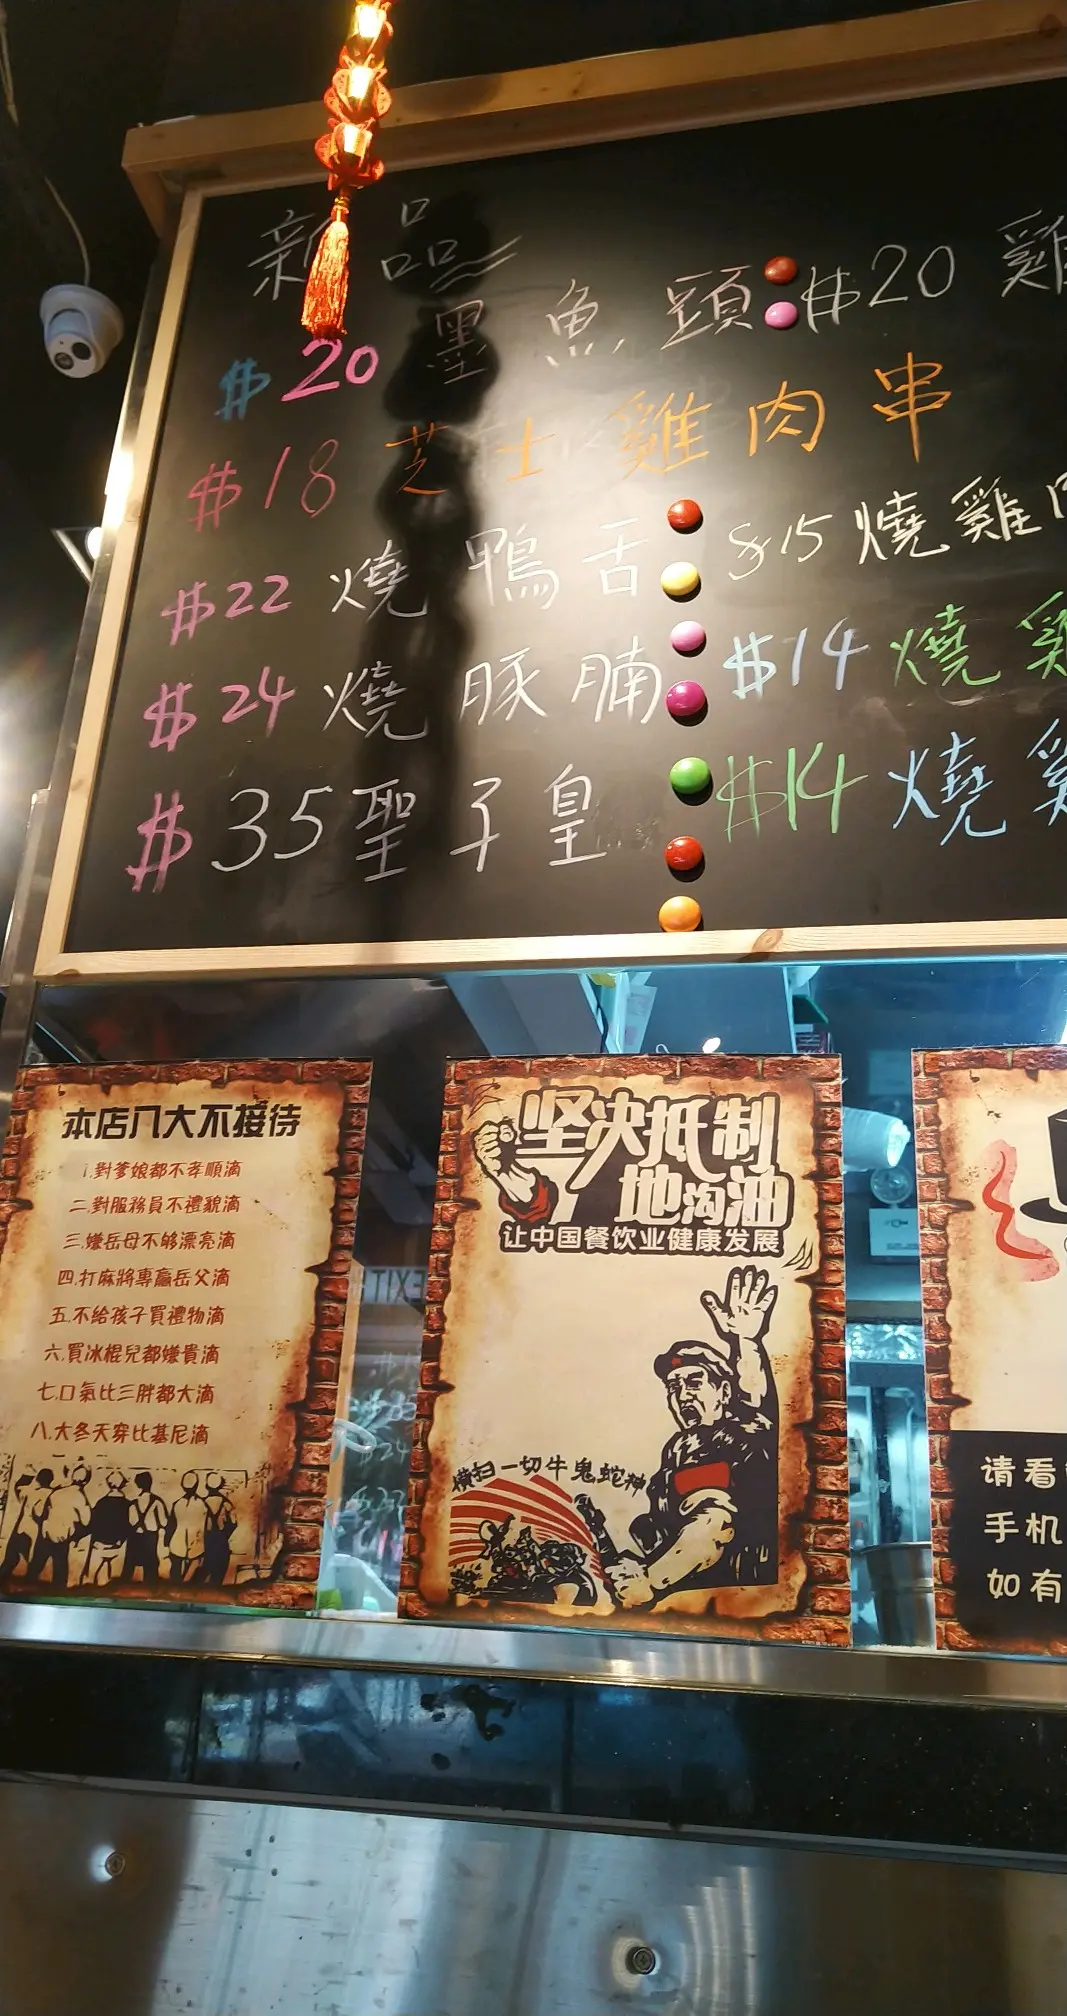 新品
$20 墨魚頭
$18 芝士雞肉串
$22 燒鴨舌
$24 燒豚腩
$35 聖子皇
$20 雞
$15 燒雞
$14 燒雞
$14 燒雞
本店八大不接待
1.對爹娘都不孝順滴
二.對服務員不禮貌滴
三.嫌岳母不够漂亮滴
四.打麻將專贏岳父滴
五.不給孩子買禮物滴
六.買冰棍兒都嫌貴滴
七.口氣比三胖都大滴
八.大冬天穿比基尼滴
坚决抵制
地沟油
让中国餐饮业健康发展
横扫一切牛鬼蛇神
请看
手机
如有
EXIT
$24